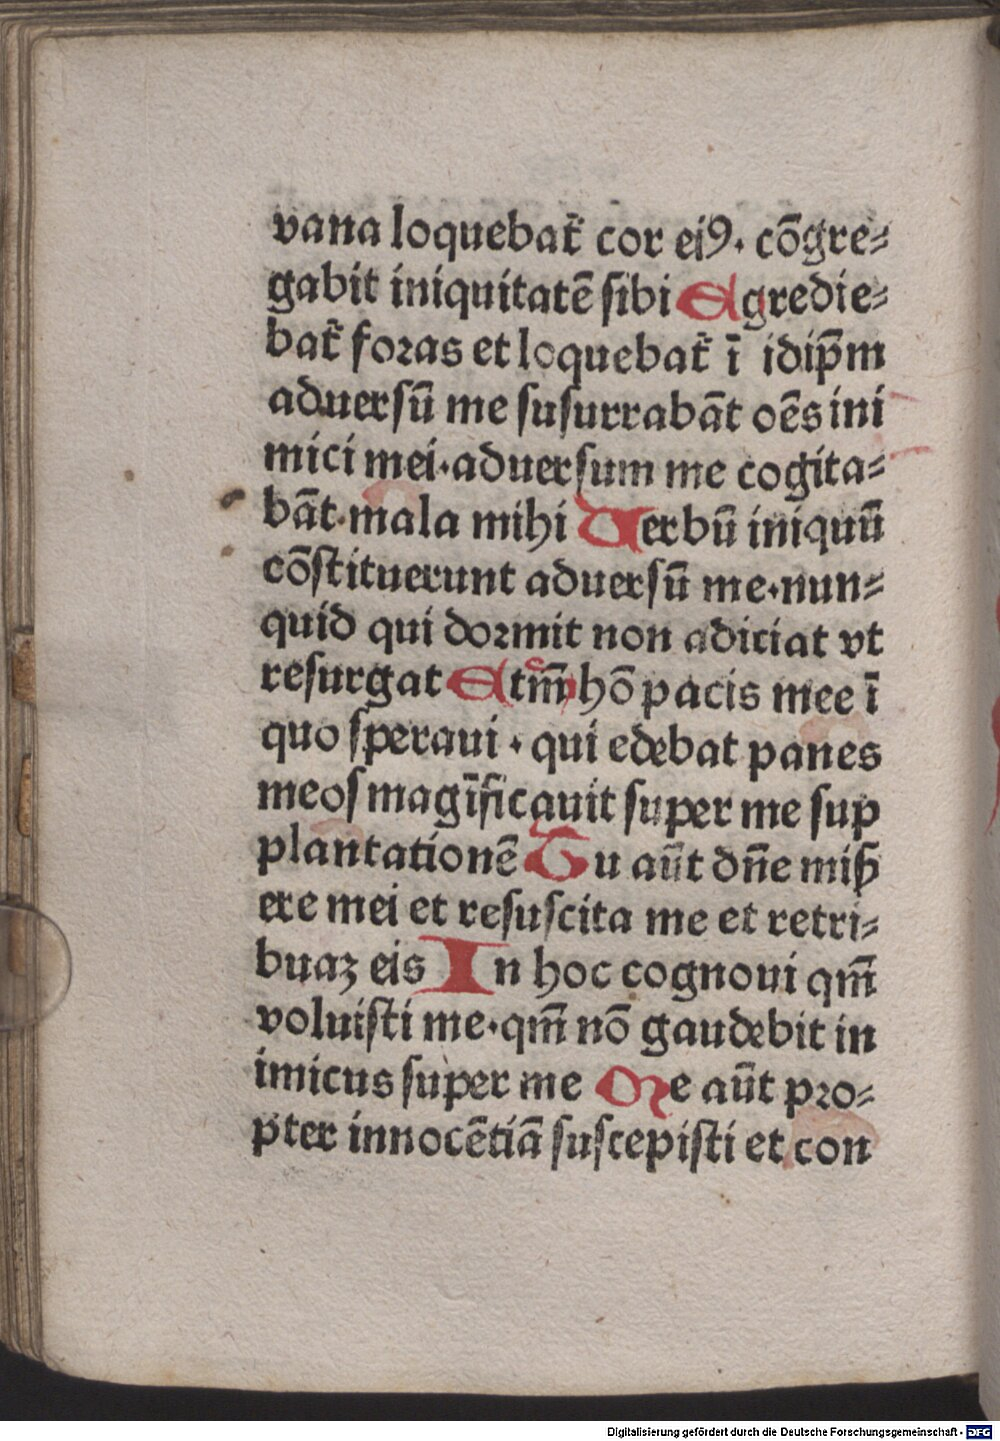 vana loquebat᷑ cor eiꝰ. cōgre⸗
gabit iniquitatē ſibi Egredie⸗
bat᷑ foꝛas et loquebat᷑ ī idip̄m
aduerſū me ſuſurrabāt oēs ini
mici mei.aduerſum me cogita⸗
bāt.mala mihi Uerbū iniquū
cōſtituerunt aduerſū me.nun⸗
quid qui doꝛmit non adiciat vt
reſurgat Etm̄ hō pacis mee ī
quo ſperaui . qui edebat panes
meoſ magīficauit ſuper me ſup
plantationē Tu aūt dn̄e miſ
ere mei et reſuſcita me et retri⸗
buaꝫ eis In hoc cognoui qm̄
voluiſti me.qm̄ nō gaudebit in
imicus ſuper me Me aūt pꝛo⸗
pter innocētiā ſuſcepiſti et con
Digitalisierung gefördert durch die Deutsche Forschungsgemeinschaft - DFG